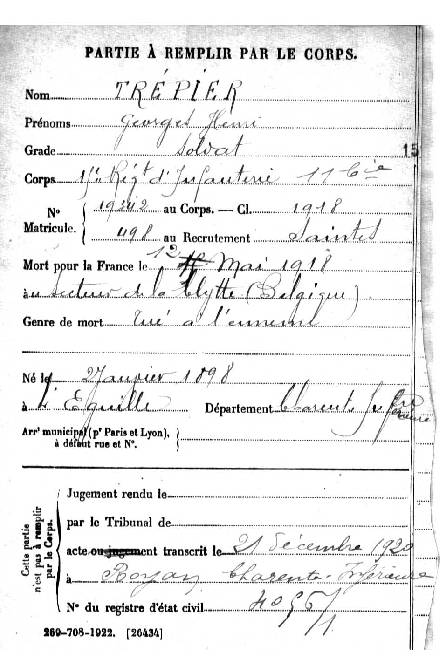 PARTIE À REMPLIR PAR LE CORPS.
Nom TRÉPIER
Prénoms Georges Henri
Grade Soldat
15
Corps Rég't d'Infanterie 11 Cie
Nº 19242 au Corps. — Cl. 1918
Matricule. 498 au Recrutement Saintes
Mort pour la France le 12 Mai 1918
à au Secteur de la Clytte (Belgique)
Genre de mort tué à l'ennemi
Né le 2 Janvier 1898
à L'Eguille Département Charente Inférieure
Arrt municipal (pr Paris et Lyon),
à défaut rue et Nº.
Cette partie
n'est pas à remplir
par le Corps.
Jugement rendu le
par le Tribunal de
acte ou jugement transcrit le 21 décembre 1920
à Royan Charente-Inférieure
Nº du registre d'état civil
269-708-1922. [26434]